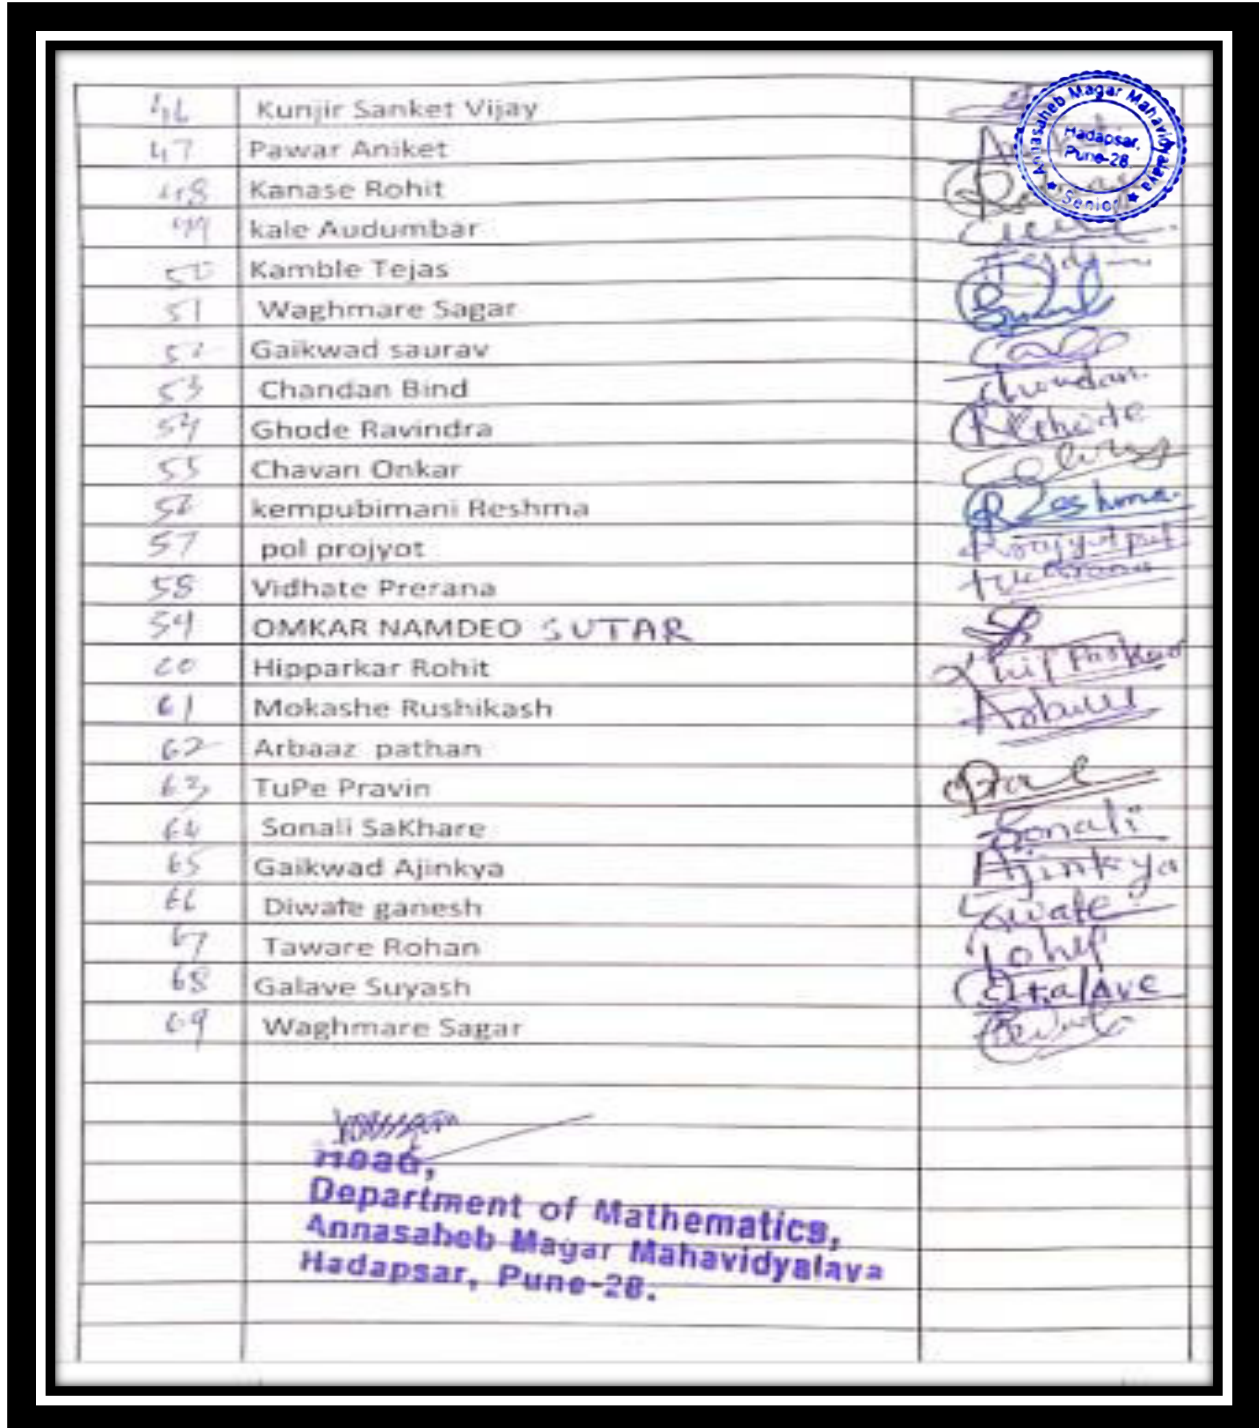 46 Kunjir Sanket Vijay
47 Pawar Aniket
48 Kanase Rohit
49 kale Audumbar
50 Kamble Tejas
51 Waghmare Sagar
52 Gaikwad saurav
53 Chandan Bind Chandan.
54 Ghode Ravindra
55 Chavan Onkar
56 kempubimani Reshma Reshma.
57 pol projyot
58 Vidhate Prerana
59 OMKAR NAMDEO SUTAR
60 Hipparkar Rohit
61 Mokashe Rushikash
62 Arbaaz pathan
63 TuPe Pravin
64 Sonali SaKhare Sonali
65 Gaikwad Ajinkya Ajinkya
66 Diwate ganesh
67 Taware Rohan
68 Galave Suyash Galave
69 Waghmare Sagar
Annasaheb Magar Mahavidyalaya
Hadapsar,
Pune-28.
Senior
Head,
Department of Mathematics,
Annasaheb Magar Mahavidyalaya
Hadapsar, Pune-28.